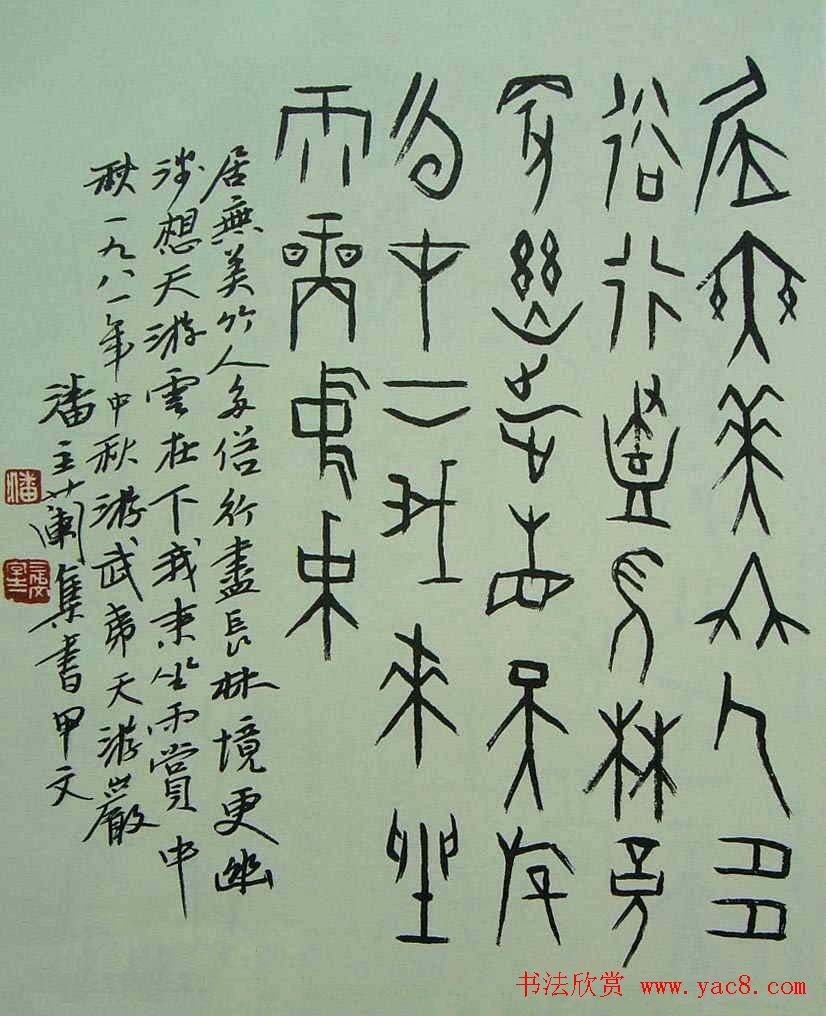 居無美竹人多
俗行盡長林境
更幽涉想天游
雲在下我來坐
雨賞中秋
居無美竹人多俗行盡長林境更幽
涉想天游雲在下我來坐雨賞中
秋一九八一年中秋游武夷天游巖
潘主蘭集書甲文
潘
书法欣赏 www.yac8.com